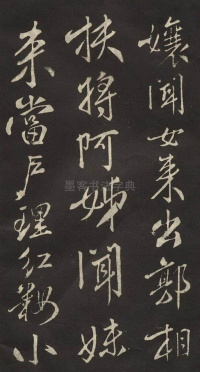 孃聞女来出郭相
扶將阿姊聞妹
来當户理红粧小
墨客书法字典